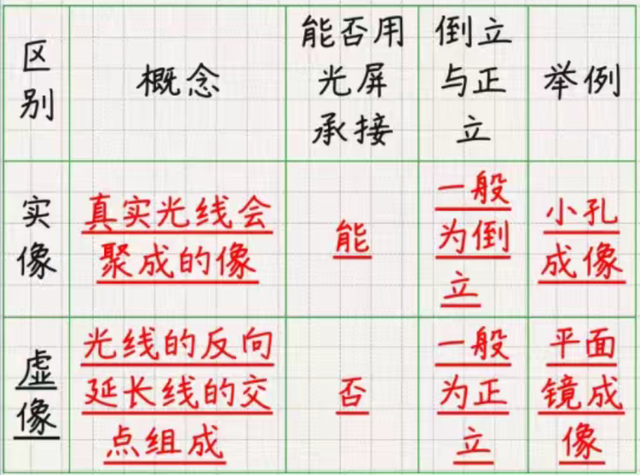 区别
概念
能否用
光屏
承接
倒立
与正
立
举例
实像
真实光线会
聚成的像
能
一般
为倒
立
小孔
成像
虚像
光线的反向
延长线的交
点组成
否
一般
为正
立
平面
镜成
像